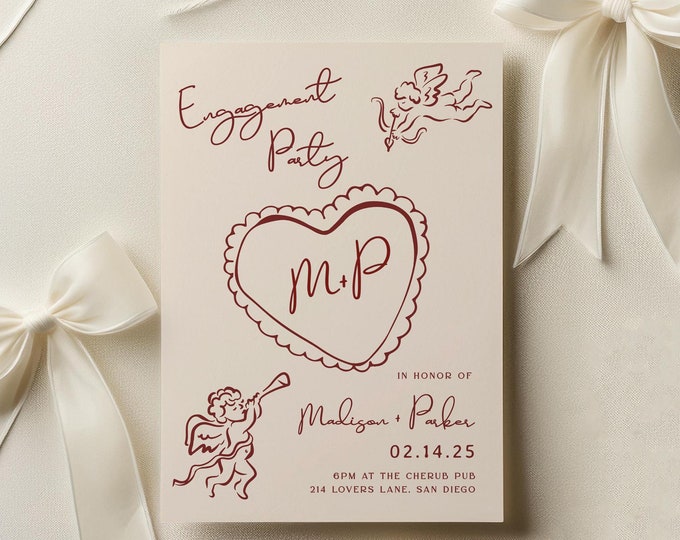 Engagement
Party
M+P
IN HONOR OF
Madison + Parker
02.14.25
6PM AT THE CHERUB PUB
214 LOVERS LANE, SAN DIEGO